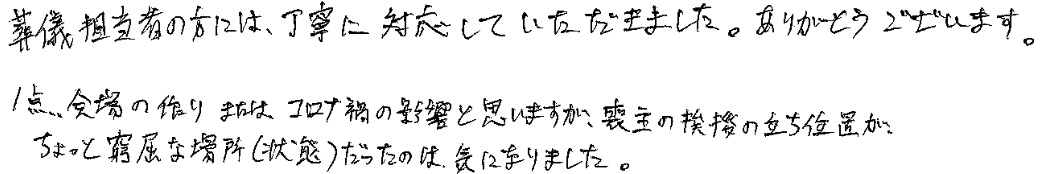 葬儀担当者の方には、丁寧に対応していただきました。ありがとうございます。
1点、会場の作りまたは、コロナ禍の影響と思いますが、喪主の挨拶の立ち位置が、
ちょっと窮屈な場所(状態)だったのは、気になりました。